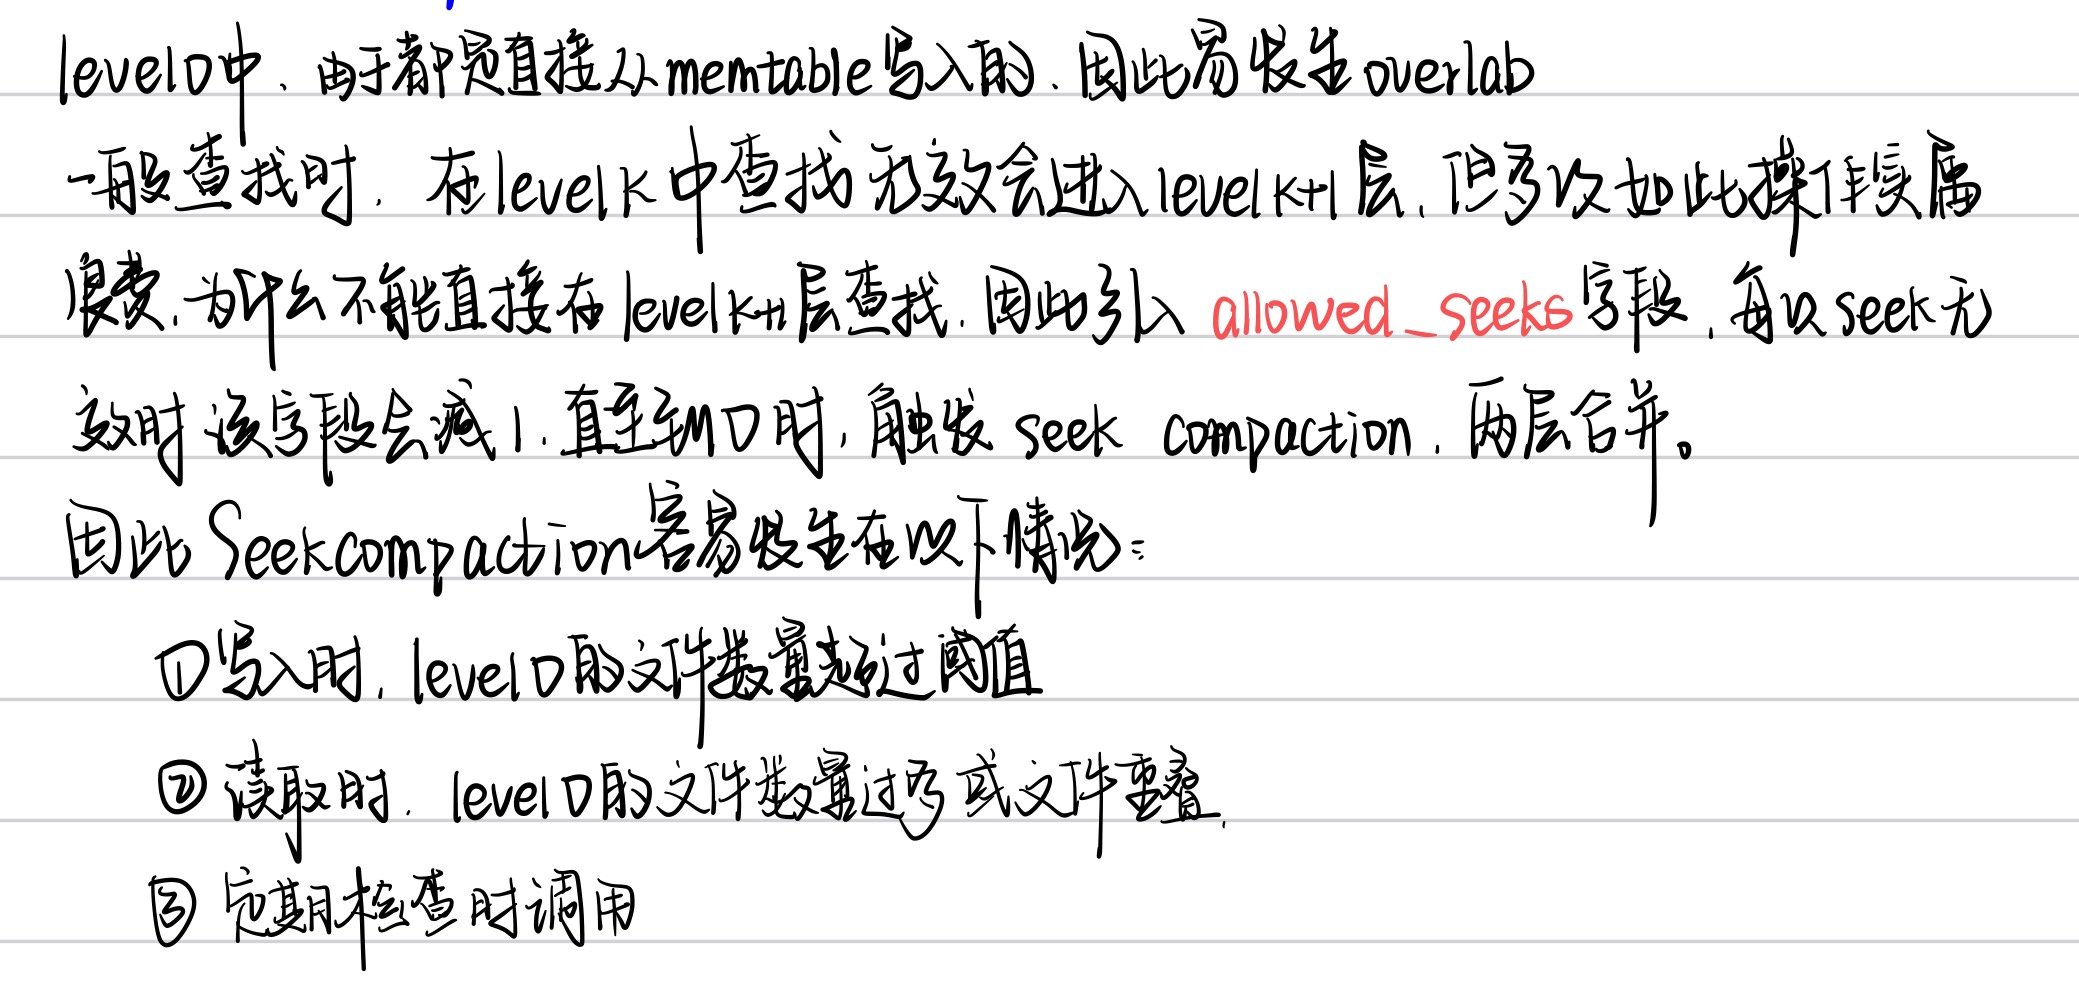 level0中、由于都是直接从memtable写入的、因此易发生overlab
一般查找时，在levelk中查找无效会进入levelk+1层，但多次如此操作实属
浪费，为什么不能直接在levelk+1层查找，因此引入 allowed_seeks字段，每次seek无
效时该字段会减1，直至到0时，触发 seek compaction，两层合并。
因此Seekcompaction容易发生在以下情况：
①写入时，level0的文件数量超过阈值
②读取时，level0的文件数量过多或文件重叠.
③定期检查时调用